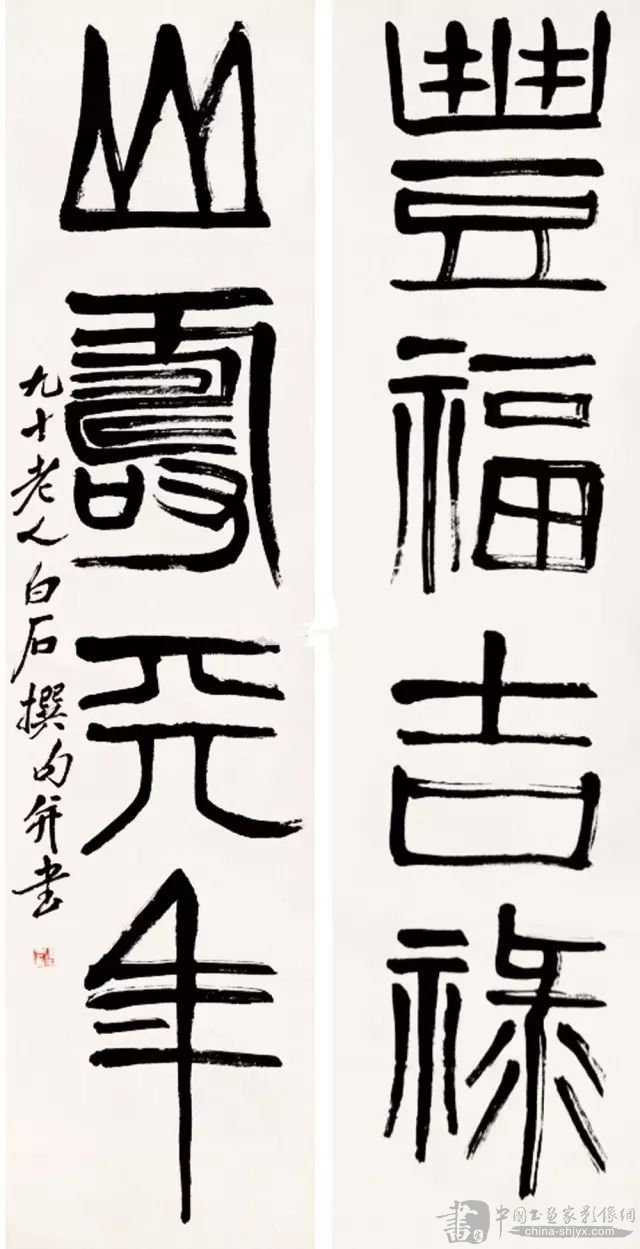 豐福吉祿
山壽天年
九十老人白石撰句并書
中國書畫家影像網
china-shjyx.com